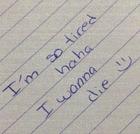 I'm so tired
haha
I wanna
die ☺